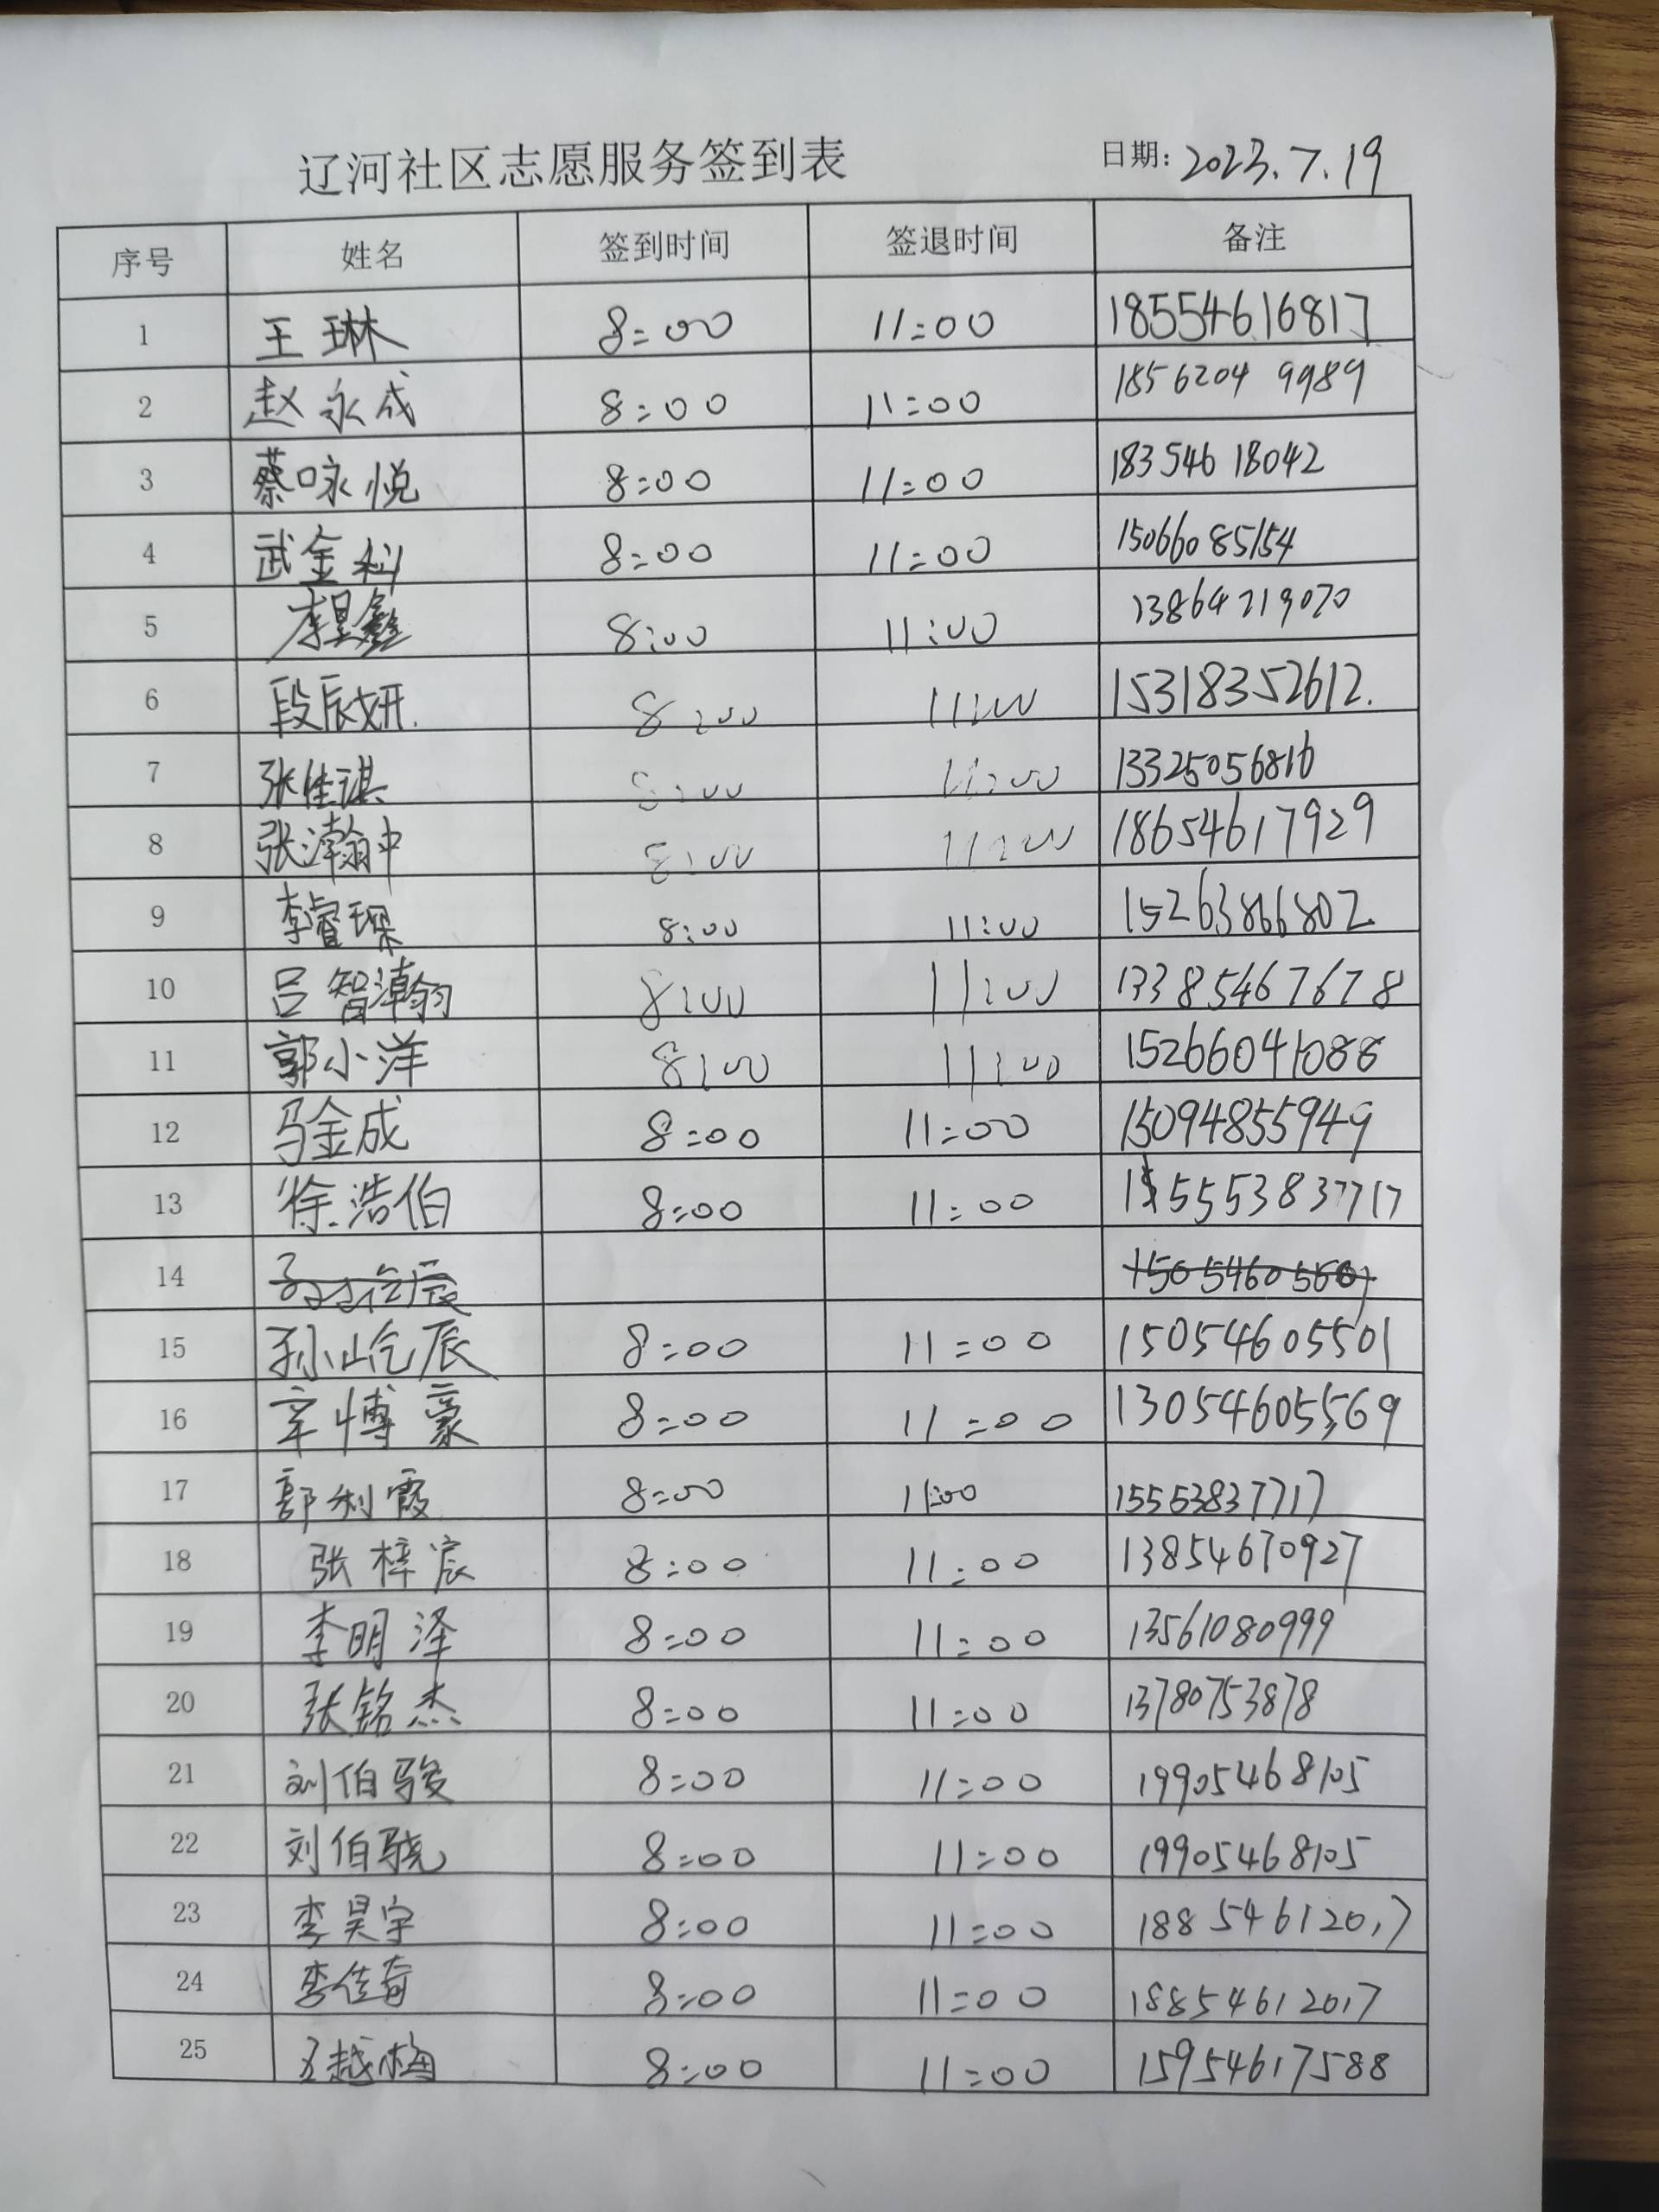 辽河社区志愿服务签到表 日期: 2023.7.19
序号 姓名 签到时间 签退时间 备注
1 王琳 8:00 11:00 18554616817
2 赵永成 8:00 11:00 18562049989
3 蔡咏悦 8:00 11:00 18354618042
4 武金利 8:00 11:00 15066085154
5 李昱鑫 8:00 11:00 13864719070
6 段辰妍. 8:00 11:00 15318352612.
7 张佳谋 8:00 11:00 13325056816
8 张瀚中 8:00 11:00 18654617929
9 李睿琛 8:00 11:00 15263866802
10 吕智瀚 8:00 11:00 13385467678
11 郭小洋 8:00 11:00 15266041088
12 马金成 8:00 11:00 15094855949
13 徐浩伯 8:00 11:00 15553837717
14
15 孙屹辰 8:00 11:00 15054605501
16 辛博豪 8:00 11:00 13054605569
17 郭利霞 8:00 11:00 15553837717
18 张梓宸 8:00 11:00 13854670927
19 李明泽 8:00 11:00 13561080999
20 张铭杰 8:00 11:00 13780753878
21 刘伯骏 8:00 11:00 19905468105
22 刘伯骁 8:00 11:00 19905468105
23 李昊宇 8:00 11:00 18854612017
24 李佳奇 8:00 11:00 18854612017
25 王越梅 8:00 11:00 15954617588